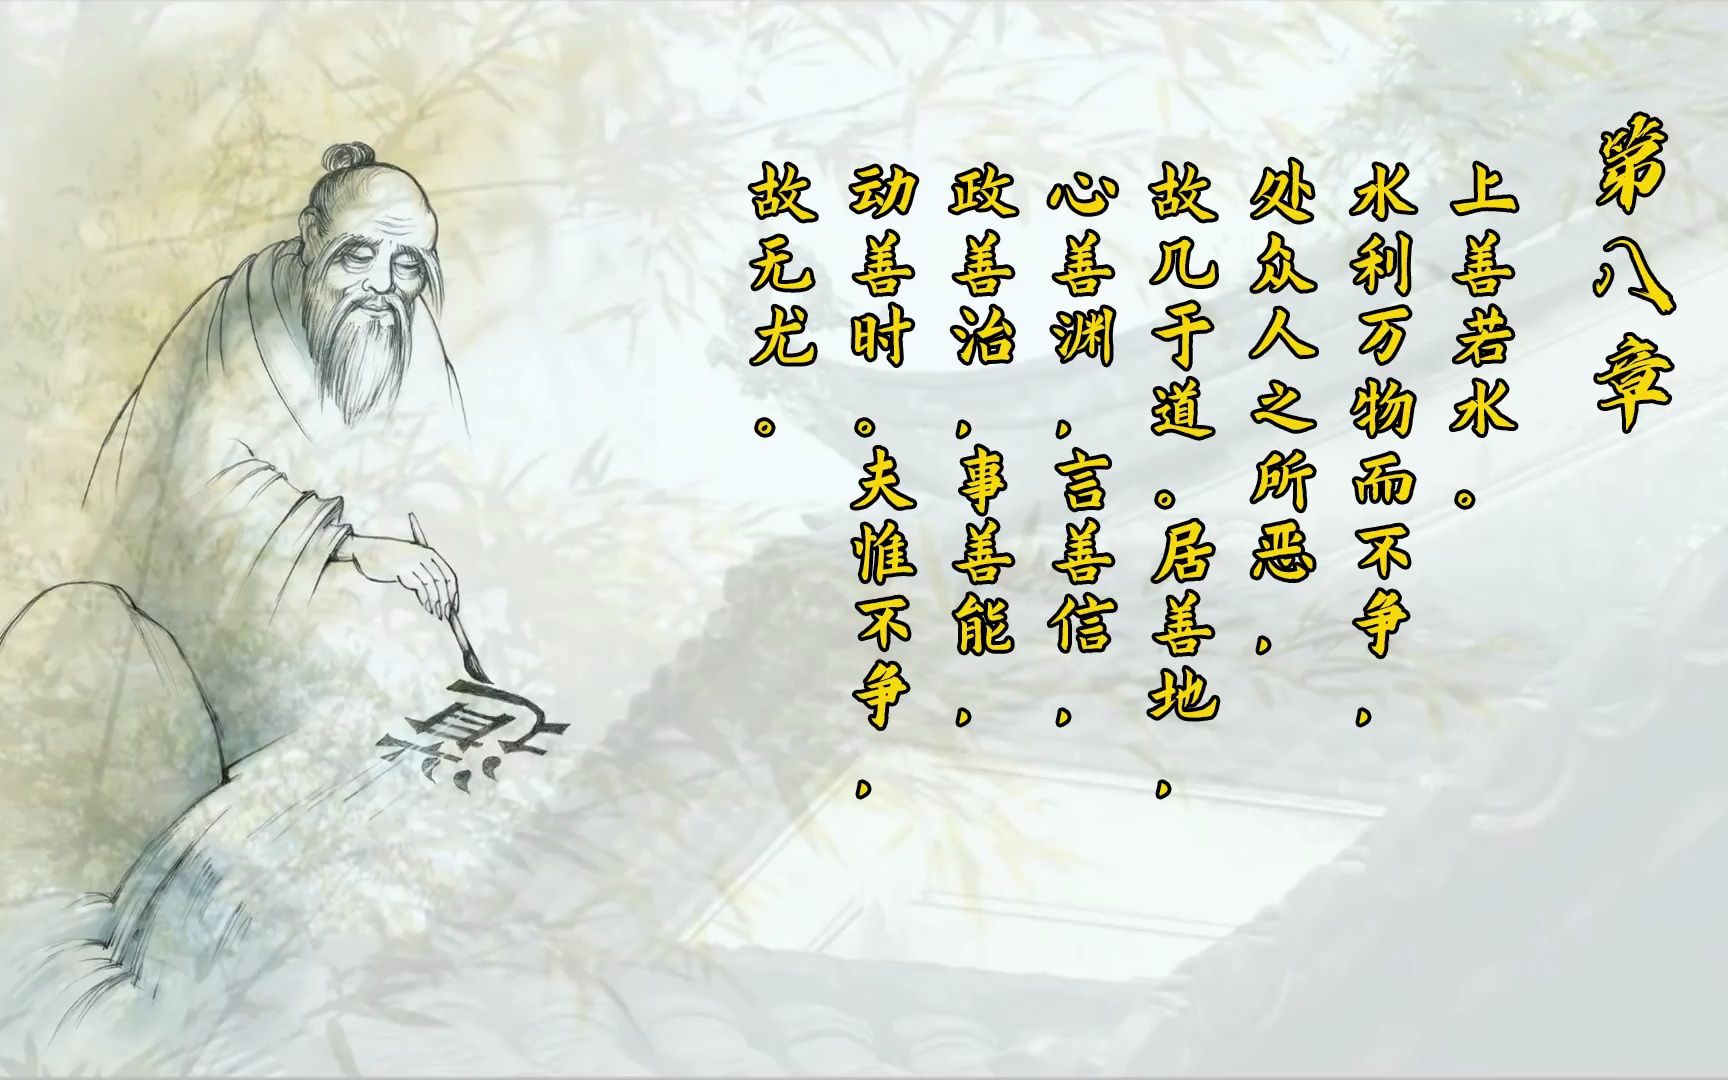 第八章
上善若水。
水利万物而不争,
处众人之所恶,
故几于道。居善地,
心善渊,言善信,
政善治,事善能,
动善时。夫惟不争,
故无尤。